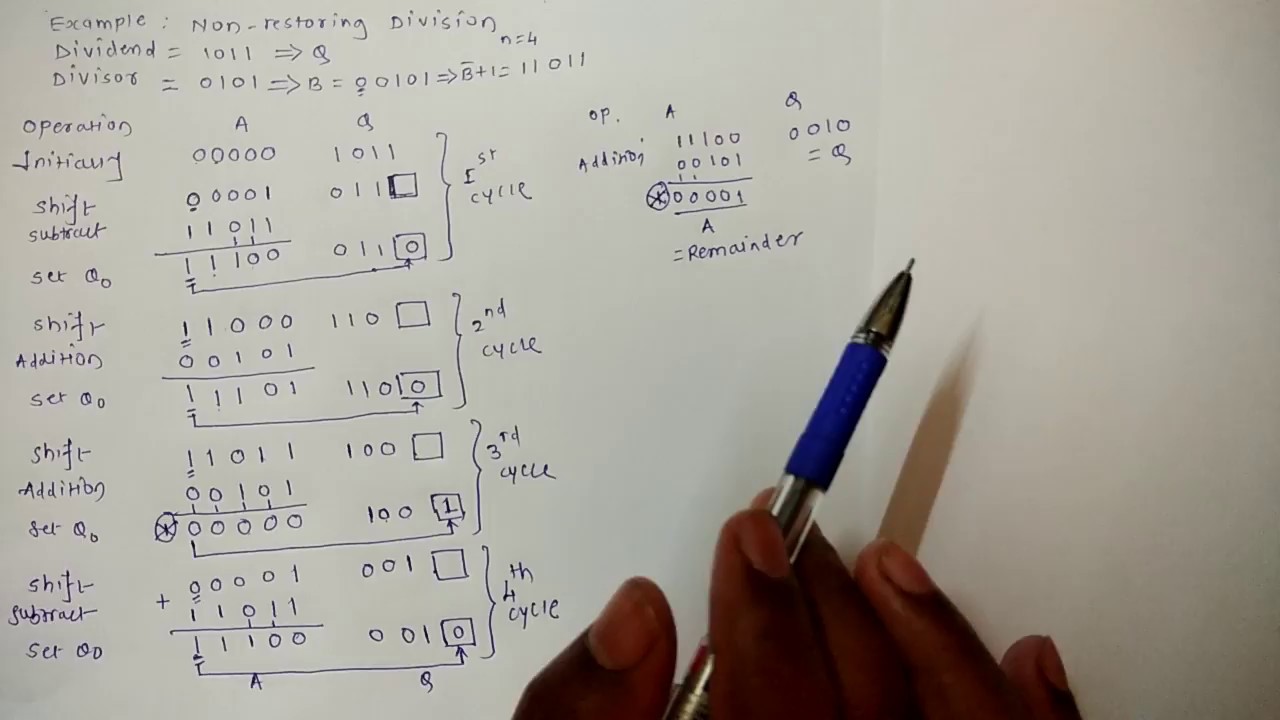 Example: Non-restoring Division
Dividend = 1011 => Q n=4
Divisor = 0101 => B = 00101 => B̅+1 = 11011
Operation A Q
Initially 00000 1011
Shift 00001 011□
Subtract 11011
Set Q₀ 11100 0110
Ist cycle
Shift 11000 110□
Addition 00101
Set Q₀ 11101 1100
2nd cycle
Shift 11011 100□
Addition 00101
Set Q₀ ⊛00000 1001
3rd cycle
Shift 00001 001□
Subtract + 11011
Set Q0 11100 0010
4th cycle
A Q
OP. A Q
11100 0010
Addition 00101 = Q
⊛00001
A
= Remainder